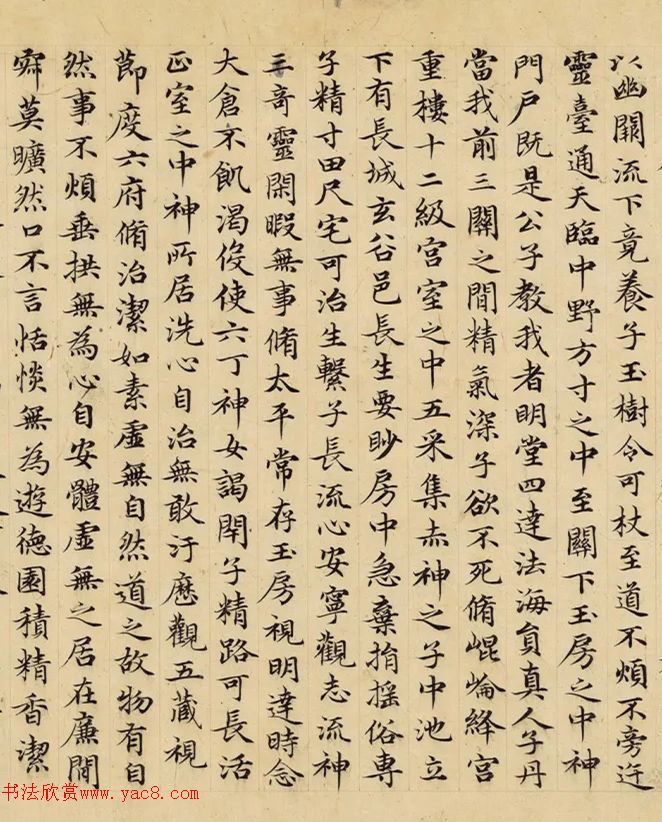 以幽關流下竟養子玉樹令可杖至道不煩不旁迕
靈臺通天臨中野方寸之中至關下玉房之中神
門戶既是公子教我者明堂四達法海員真人子丹
當我前三關之間精氣深子欲不死脩崐崘絳宮
重樓十二級宮室之中五采集赤神之子中池立
下有長城玄谷邑長生要眇房中急棄捐搖俗專
子精寸田尺宅可治生繫子長流心安寧觀志流神
三奇靈閑暇無事脩太平常存玉房視明達時念
大倉不飢渴伇使六丁神女謁閇子精路可長活
正室之中神所居洗心自治無敢汙歷觀五藏視
莭度六府脩治潔如素虛無自然道之故物有自
然事不煩垂拱無為心自安體虛無之居在廉間
寂莫曠然口不言恬惔無為遊德園積精香潔
书法欣赏www.yac8.com